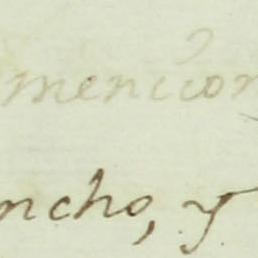 mencion
ncho, y